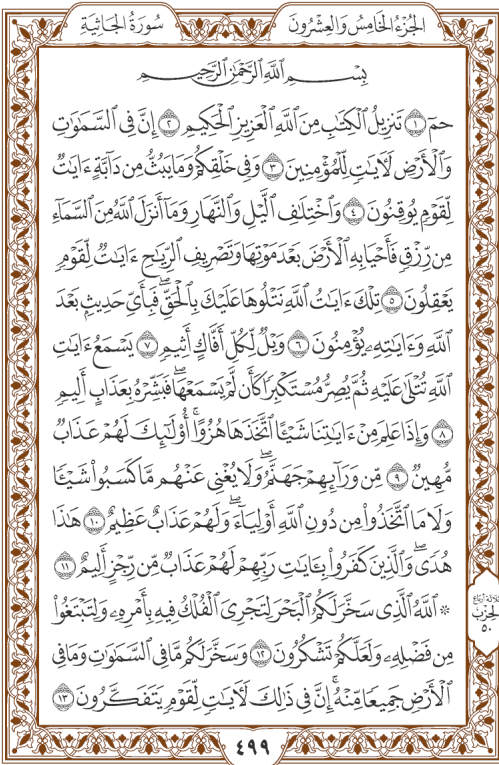 سُورَةُ الجَاثِيَةِ
الجُزْءُ الخَامِسُ وَالعِشْرُونَ
بِسْمِ ٱللَّهِ ٱلرَّحْمَٰنِ ٱلرَّحِيمِ
حمٓ ١ تَنزِيلُ ٱلْكِتَٰبِ مِنَ ٱللَّهِ ٱلْعَزِيزِ ٱلْحَكِيمِ ٢ إِنَّ فِى ٱلسَّمَٰوَٰتِ
وَٱلْأَرْضِ لَـَٔايَٰتٍ لِّلْمُؤْمِنِينَ ٣ وَفِى خَلْقِكُمْ وَمَا يَبُثُّ مِن دَآبَّةٍ ءَايَٰتٌ
لِّقَوْمٍ يُوقِنُونَ ٤ وَٱخْتِلَٰفِ ٱلَّيْلِ وَٱلنَّهَارِ وَمَآ أَنزَلَ ٱللَّهُ مِنَ ٱلسَّمَآءِ
مِن رِّزْقٍ فَأَحْيَا بِهِ ٱلْأَرْضَ بَعْدَ مَوْتِهَا وَتَصْرِيفِ ٱلرِّيَٰحِ ءَايَٰتٌ لِّقَوْمٍ
يَعْقِلُونَ ٥ تِلْكَ ءَايَٰتُ ٱللَّهِ نَتْلُوهَا عَلَيْكَ بِٱلْحَقِّ ۖ فَبِأَىِّ حَدِيثٍۭ بَعْدَ
ٱللَّهِ وَءَايَٰتِهِۦ يُؤْمِنُونَ ٦ وَيْلٌ لِّكُلِّ أَفَّاكٍ أَثِيمٍ ٧ يَسْمَعُ ءَايَٰتِ
ٱللَّهِ تُتْلَىٰ عَلَيْهِ ثُمَّ يُصِرُّ مُسْتَكْبِرًا كَأَن لَّمْ يَسْمَعْهَا ۖ فَبَشِّرْهُ بِعَذَابٍ أَلِيمٍ
٨ وَإِذَا عَلِمَ مِنْ ءَايَٰتِنَا شَيْـًٔا ٱتَّخَذَهَا هُزُوًا ۚ أُو۟لَٰٓئِكَ لَهُمْ عَذَابٌ
مُّهِينٌ ٩ مِّن وَرَآئِهِمْ جَهَنَّمُ ۖ وَلَا يُغْنِى عَنْهُم مَّا كَسَبُوا۟ شَيْـًٔا
وَلَا مَا ٱتَّخَذُوا۟ مِن دُونِ ٱللَّهِ أَوْلِيَآءَ ۖ وَلَهُمْ عَذَابٌ عَظِيمٌ ١٠ هَٰذَا
هُدًى ۖ وَٱلَّذِينَ كَفَرُوا۟ بِـَٔايَٰتِ رَبِّهِمْ لَهُمْ عَذَابٌ مِّن رِّجْزٍ أَلِيمٌ ١١
۞ ٱللَّهُ ٱلَّذِى سَخَّرَ لَكُمُ ٱلْبَحْرَ لِتَجْرِىَ ٱلْفُلْكُ فِيهِ بِأَمْرِهِۦ وَلِتَبْتَغُوا۟
مِن فَضْلِهِۦ وَلَعَلَّكُمْ تَشْكُرُونَ ١٢ وَسَخَّرَ لَكُم مَّا فِى ٱلسَّمَٰوَٰتِ وَمَا فِى
ٱلْأَرْضِ جَمِيعًا مِّنْهُ ۚ إِنَّ فِى ذَٰلِكَ لَـَٔايَٰتٍ لِّقَوْمٍ يَتَفَكَّرُونَ ١٣
ثلاثة أرباع
الحزب
٥٠
٤٩٩